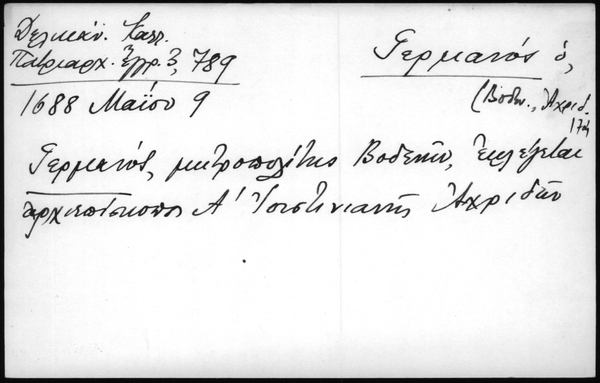 Δελικάν. Καλλ.
Πατριαρχ. Ἔγγρ. 3, 789
1688 Μαΐου 9
Γερμανός ὁ,
(Βοδεν., Ἀχριδ.
Γερμανός, μητροπολίτης Βοδενῶν, ἐκλέγεται
ἀρχιεπίσκοπος Α' Ἰουστινιανῆς Ἀχριδῶν